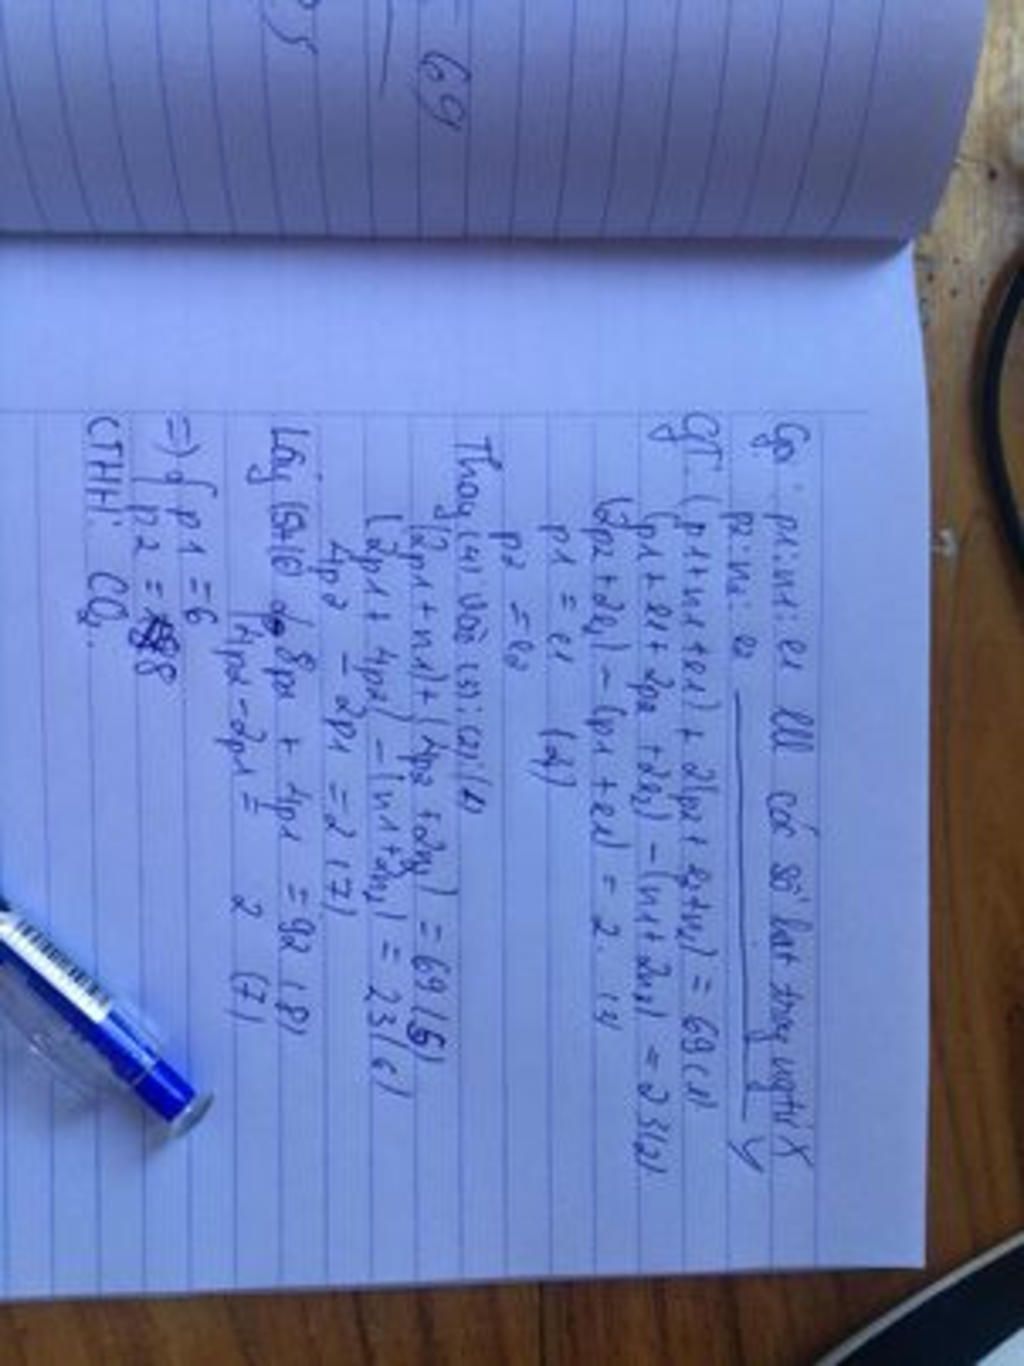 69
5
Gọi: p1: n1: e1 lll có số hạt trong ngtử X
p2: n2: e2 Y
GT: (p1 + n1 + e1) + 2(p2 + e2 + n2) = 69 (1)
(p1 + e1 + 2p2 + 2e2) - (n1 + 2n2) = 23 (2)
(2p2 + 2e2) - (p1 + e1) = 2 (3)
p1 = e1 (4)
p2 = e2
Thay (4) vào (3); (2); (1)
(2p1 + n1) + (4p2 + 2n2) = 69 (5)
(2p1 + 4p2) - (n1 + 2n2) = 23 (6)
4p2 - 2p1 = 2 (7)
Lấy (5)+(6) 8p2 + 4p1 = 92 (8)
4p2 - 2p1 = 2 (7)
=> { p1 = 6
p2 = 8
CTHH: CO2.